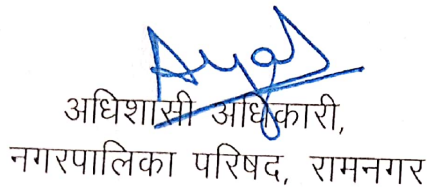 अधिशासी अधिकारी,
नगरपालिका परिषद, रामनगर